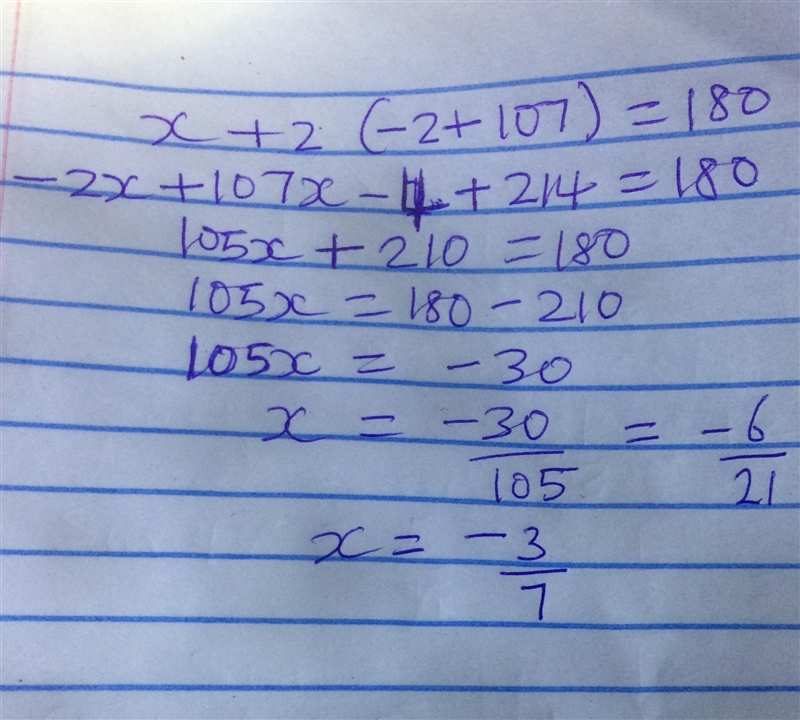 x + 2 (-2+107) = 180
-2x+107x-4+214=180
105x+210=180
105x=180-210
105x = -30
x = -30/105 = -6/21
x = -3/7